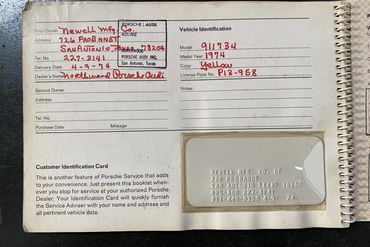 First Owner Newell Mfg. Co.
Address 726 Probandt
San Antonio, Texas 78204
Tel. No 227-2141
Delivery Date 4-9-74
Dealer's Name Northwood Porsche Audi
PORSCHE AUDI
PORSCHE AUDI INC.
San Antonio, Texas
Second Owner
Address
Tel. No.
Purchase Date Mileage
Vehicle Identification
Model 911734
Model Year 1974
Color Yellow
License Plate No. P13-958
Customer Identification Card
This is another feature of Porsche Service that adds
to your convenience. Just present this booklet when-
ever you stop for service at your authorized Porsche
Dealer. Your Identification Card will quickly furnish
the Service Adviser with your name and address and
all pertinent vehicle data.
NEWELL MFG. CO.
726 PROBANDT
SAN ANTONIO TEXAS 78204